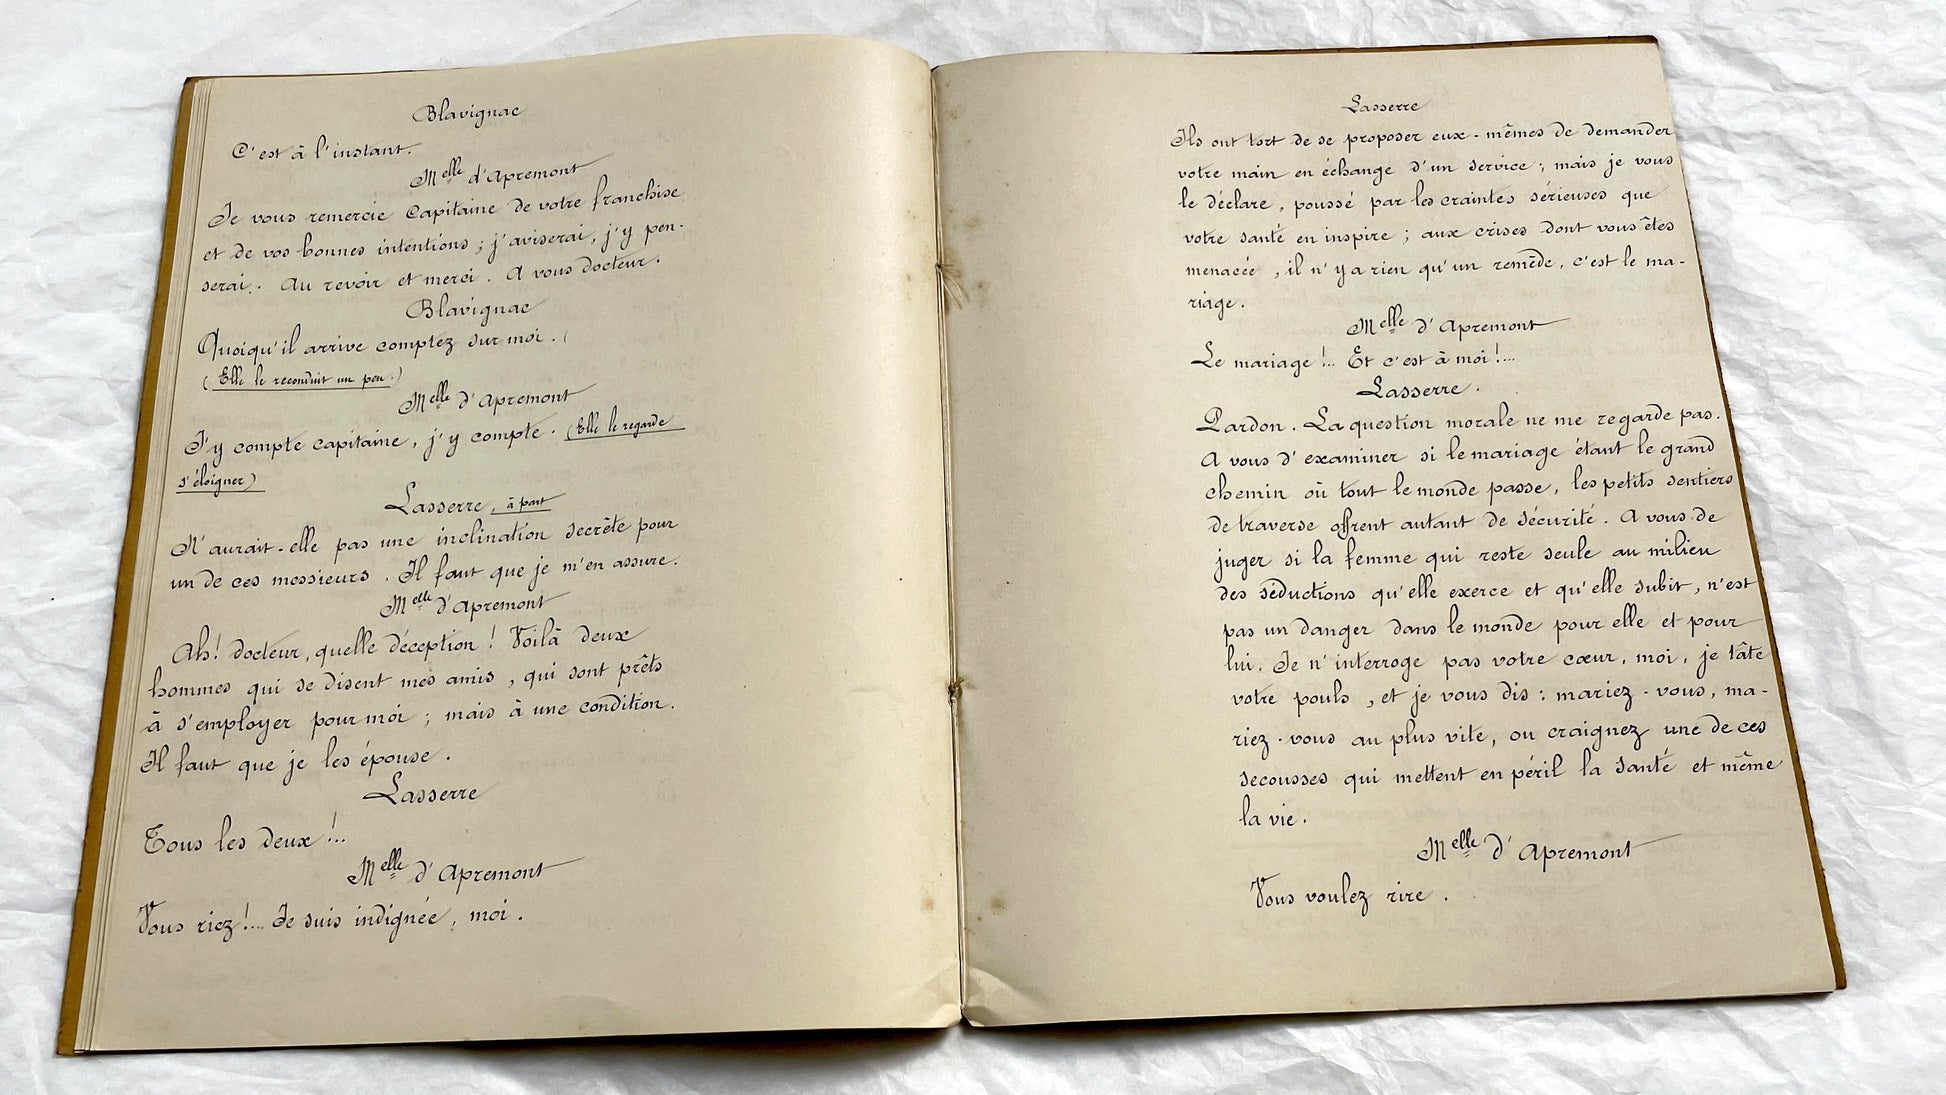 Blavignac
C'est à l'instant.
Melle d'Apremont
Je vous remercie Capitaine de votre franchise
et de vos bonnes intentions ; j'aviserai, j'y pen-
serai. Au revoir et merci. A vous docteur.
Blavignac
Quoiqu'il arrive comptez sur moi.
(Elle le reconduit un peu.)
Melle d'Apremont
J'y compte capitaine, j'y compte. (Elle le regarde
s'éloigner)
Lasserre, à part
N'aurait-elle pas une inclination secrète pour
un de ces messieurs. Il faut que je m'en assure.
Melle d'Apremont
Ah! docteur, quelle déception! Voilà deux
hommes qui se disent mes amis, qui sont prêts
à s'employer pour moi ; mais à une condition.
Il faut que je les épouse.
Lasserre
Tous les deux!...
Melle d'Apremont
Vous riez!... Je suis indignée, moi.
Lasserre
Ils ont tort de se proposer eux-mêmes de demander
votre main en échange d'un service ; mais je vous
le déclare, poussé par les craintes sérieuses que
votre santé en inspire ; aux crises dont vous êtes
menacée, il n'y a rien qu'un remède, c'est le ma-
riage.
Melle d'Apremont
Le mariage!... Et c'est à moi!...
Lasserre.
Pardon. La question morale ne me regarde pas.
A vous d'examiner si le mariage étant le grand
chemin où tout le monde passe, les petits sentiers
de traverse offrent autant de sécurité. A vous de
juger si la femme qui reste seule au milieu
des séductions qu'elle exerce et qu'elle subit, n'est
pas un danger dans le monde pour elle et pour
lui. Je n'interroge pas votre cœur, moi, je tâte
votre pouls, et je vous dis : mariez-vous, ma-
riez-vous au plus vite, ou craignez une de ces
secousses qui mettent en péril la santé et même
la vie.
Melle d'Apremont
Vous voulez rire.